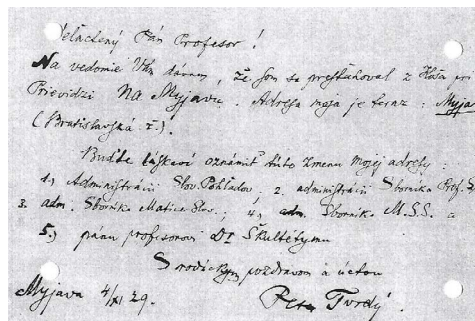 Velactený Pán Profesor!
Na vedomie Vám dávam, že som sa presťahoval z Koša pri
Prievidzi na Myjavu. Adresa moja je teraz: Myja
(Bratislavská ž.).
Buďte láskaví oznámiť túto zmenu mojej adresy:
1., Administrácii Slov. Pohľadov; 2. administrácii Sborníka Prof.
3. adm. Sborníka Matice Slov.; 4., adm. Sborník. M.S.S. a
5., pánu profesorovi Dr Škultétymu
S rodáckym pozdravom a úctou
Myjava 4/XI 29.
Peter Tvrdý.